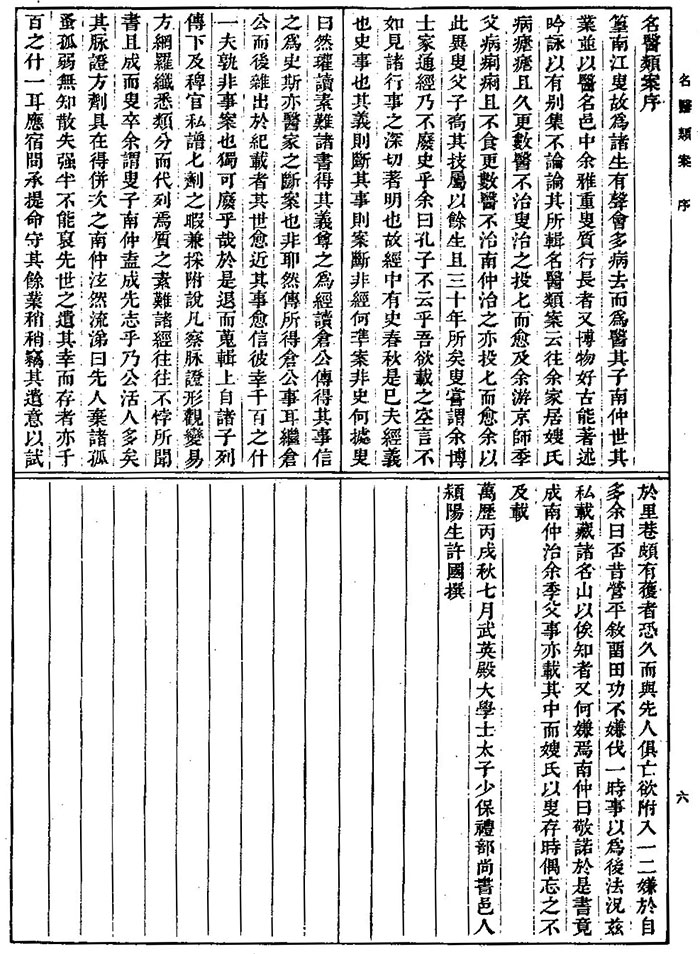 名醫類案 序
六
名醫類案序
篁南江叟故爲諸生有聲會多病去而爲醫其子南仲世其
業並以醫名邑中余雅重叟質行長者又博物好古能著述
吟詠以有别集不論論其所輯名醫類案云往余家居嫂氏
病瘧瘧且久更數醫不治叟治之投七而愈及余游京師季
父病痢痢且不食更數醫不治南仲治之亦投七而愈余以
此異叟父子高其技屬以餘生且三十年所矣叟嘗謂余博
士家通經乃不廢史乎余曰孔子不云乎吾欲載之空言不
如見諸行事之深切著明也故經中有史春秋是巳夫經義
也史事也其義則斷其事則案斷非經何準案非史何據叟
曰然瓘讀素難諸書得其義尊之爲經讀倉公傳得其事信
之爲史斯亦醫家之斷案也非耶然傳所得倉公事耳繼倉
公而後雜出於紀載者其世愈近其事愈信彼幸千百之什
一夫孰非事案也獨可廢乎哉於是退而蒐輯上自諸子列
傳下及稗官私譜七劑之暇兼採附說凡察脉證形觀變易
方網羅纖悉類分而代列焉質之素難諸經往往不悖所聞
書且成而叟卒余謂叟子南仲盍成先志乎乃公活人多矣
其脉證方劑具在得併次之南仲泫然流涕曰先人棄諸孤
蚤孤弱無知散失强半不能裒先世之遺其幸而存者亦千
百之什一耳應宿間承提命守其餘業稍稍竊其遺意以試
於里巷頗有獲者恐久而與先人俱亡欲附入一二嫌於自
多余曰否昔營平敘畱田功不嫌伐一時事以爲後法況兹
私載藏諸名山以俟知者又何嫌焉南仲曰敬諾於是書竟
成南仲治余季父事亦載其中而嫂氏以叟存時偶忘之不
及載
萬歷丙戌秋七月武英殿大學士太子少保禮部尚書邑人
潁陽生許國撰